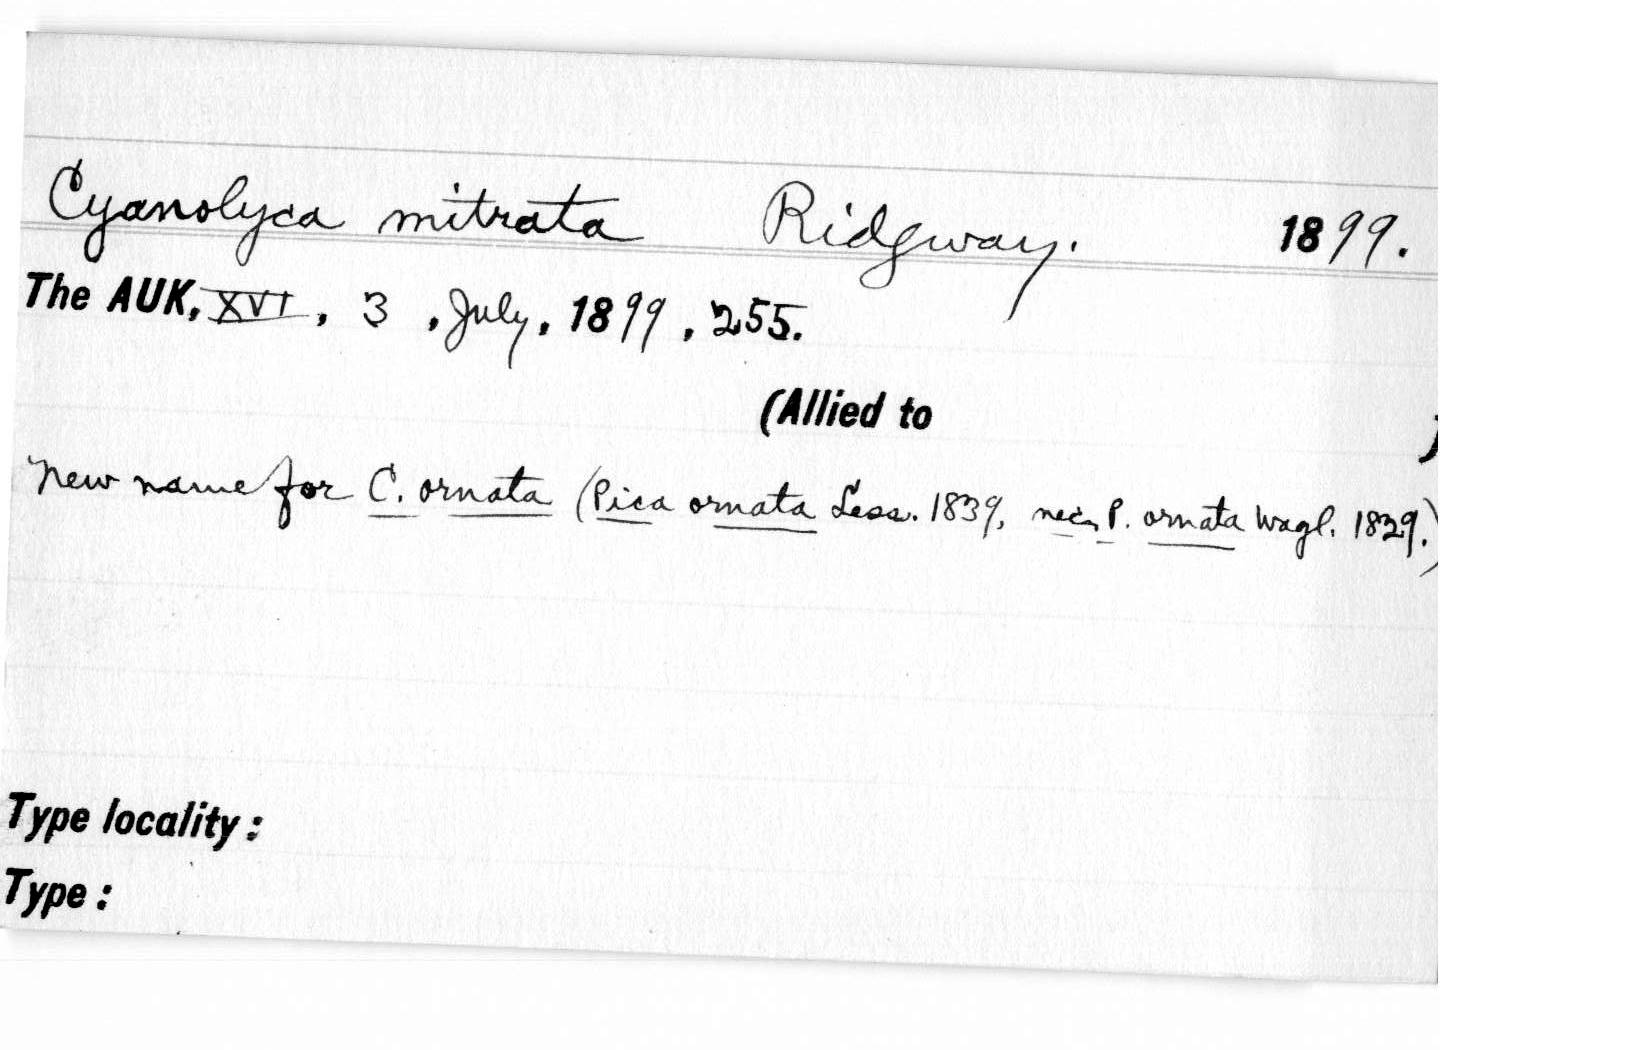 Cyanolyca mitrata Ridgway. 1899.
The AUK, XVI, 3, July, 1899, 255.
(Allied to )
New name for C. ornata (Pica ornata Less. 1839, nec P. ornata Wagl. 1829.)
Type locality:
Type: